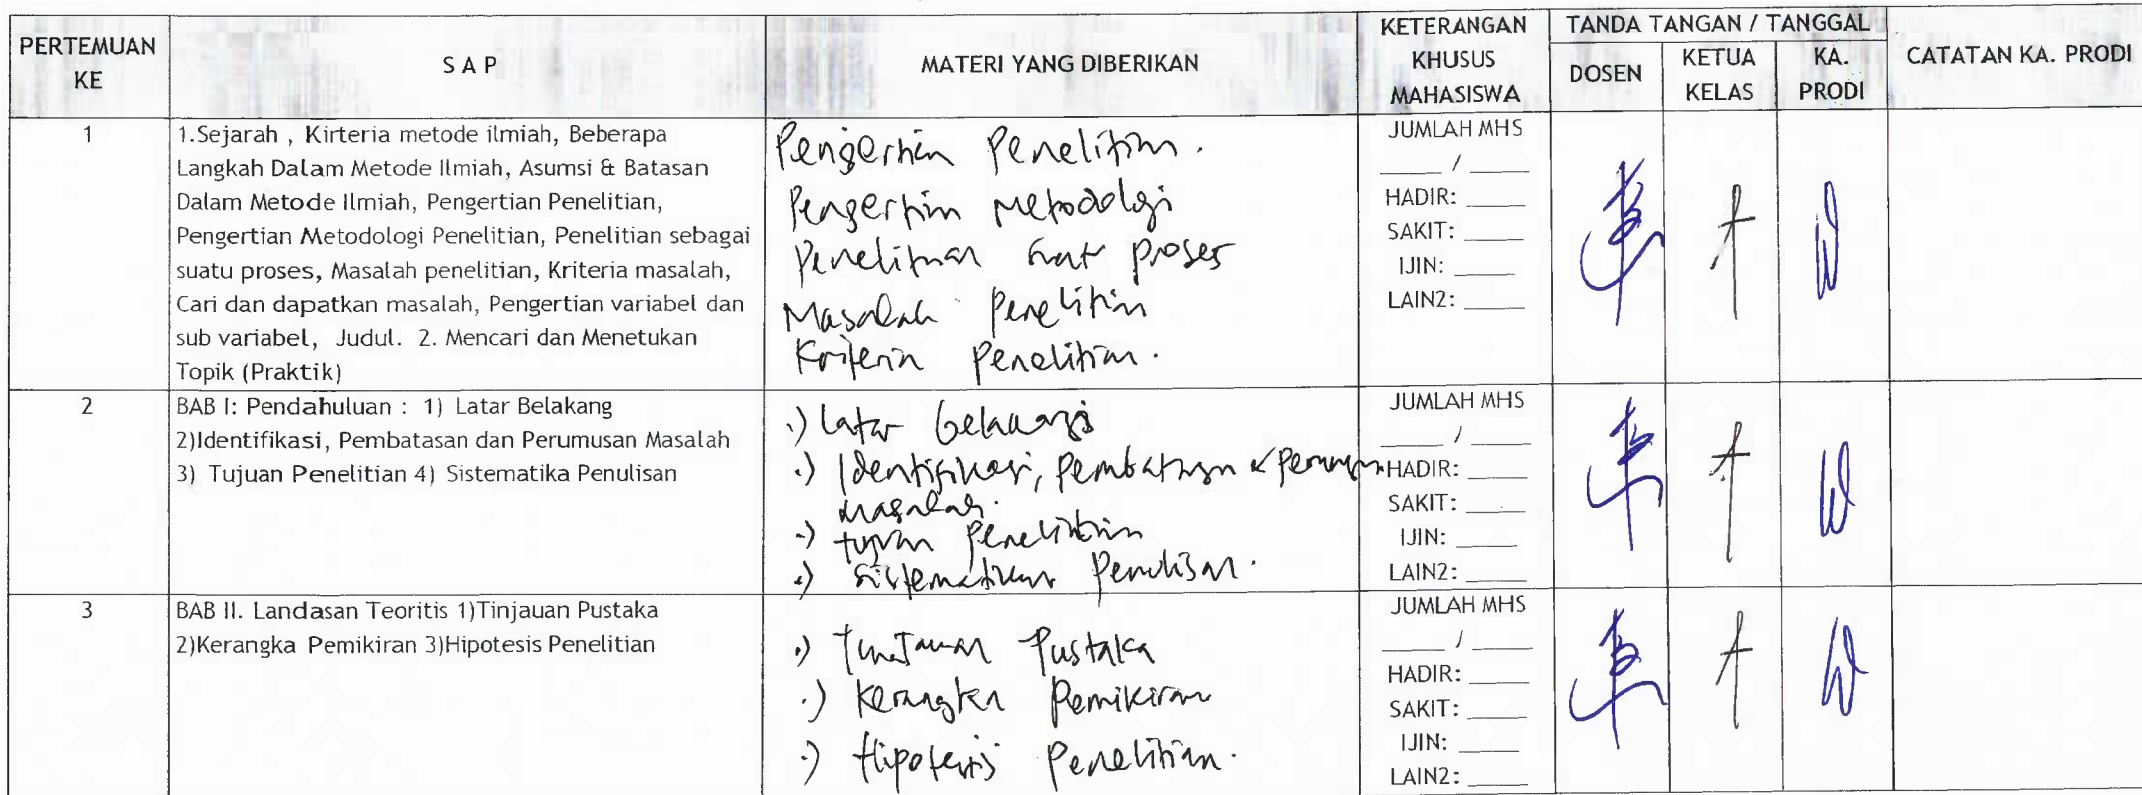 PERTEMUAN KE
S A P
MATERI YANG DIBERIKAN
KETERANGAN KHUSUS MAHASISWA
TANDA TANGAN / TANGGAL
DOSEN
KETUA KELAS
KA. PRODI
CATATAN KA. PRODI
1
1.Sejarah , Kirteria metode ilmiah, Beberapa
Langkah Dalam Metode Ilmiah, Asumsi & Batasan
Dalam Metode Ilmiah, Pengertian Penelitian,
Pengertian Metodologi Penelitian, Penelitian sebagai
suatu proses, Masalah penelitian, Kriteria masalah,
Cari dan dapatkan masalah, Pengertian variabel dan
sub variabel, Judul. 2. Mencari dan Menetukan
Topik (Praktik)
Pengertian Penelitian.
Pengertian Metodologi
Penelitian suatu proses
Masalah Penelitian
Kriteria Penelitian.
JUMLAH MHS
____ / ____
HADIR: ____
SAKIT: ____
IJIN: ____
LAIN2: ____
2
BAB I: Pendahuluan : 1) Latar Belakang
2)Identifikasi, Pembatasan dan Perumusan Masalah
3) Tujuan Penelitian 4) Sistematika Penulisan
.) Latar belakang
.) Identifikasi, Pembatasan &
masalah.
.) tujuan Penelitian
.) Sistematikan Penulisan.
JUMLAH MHS
____ / ____
HADIR: ____
SAKIT: ____
IJIN: ____
LAIN2: ____
3
BAB II. Landasan Teoritis 1)Tinjauan Pustaka
2)Kerangka Pemikiran 3)Hipotesis Penelitian
.) Tinjauan Pustaka
.) Kerangka Pemikiran
.) Hipotesis Penelitian.
JUMLAH MHS
____ / ____
HADIR: ____
SAKIT: ____
IJIN: ____
LAIN2: ____